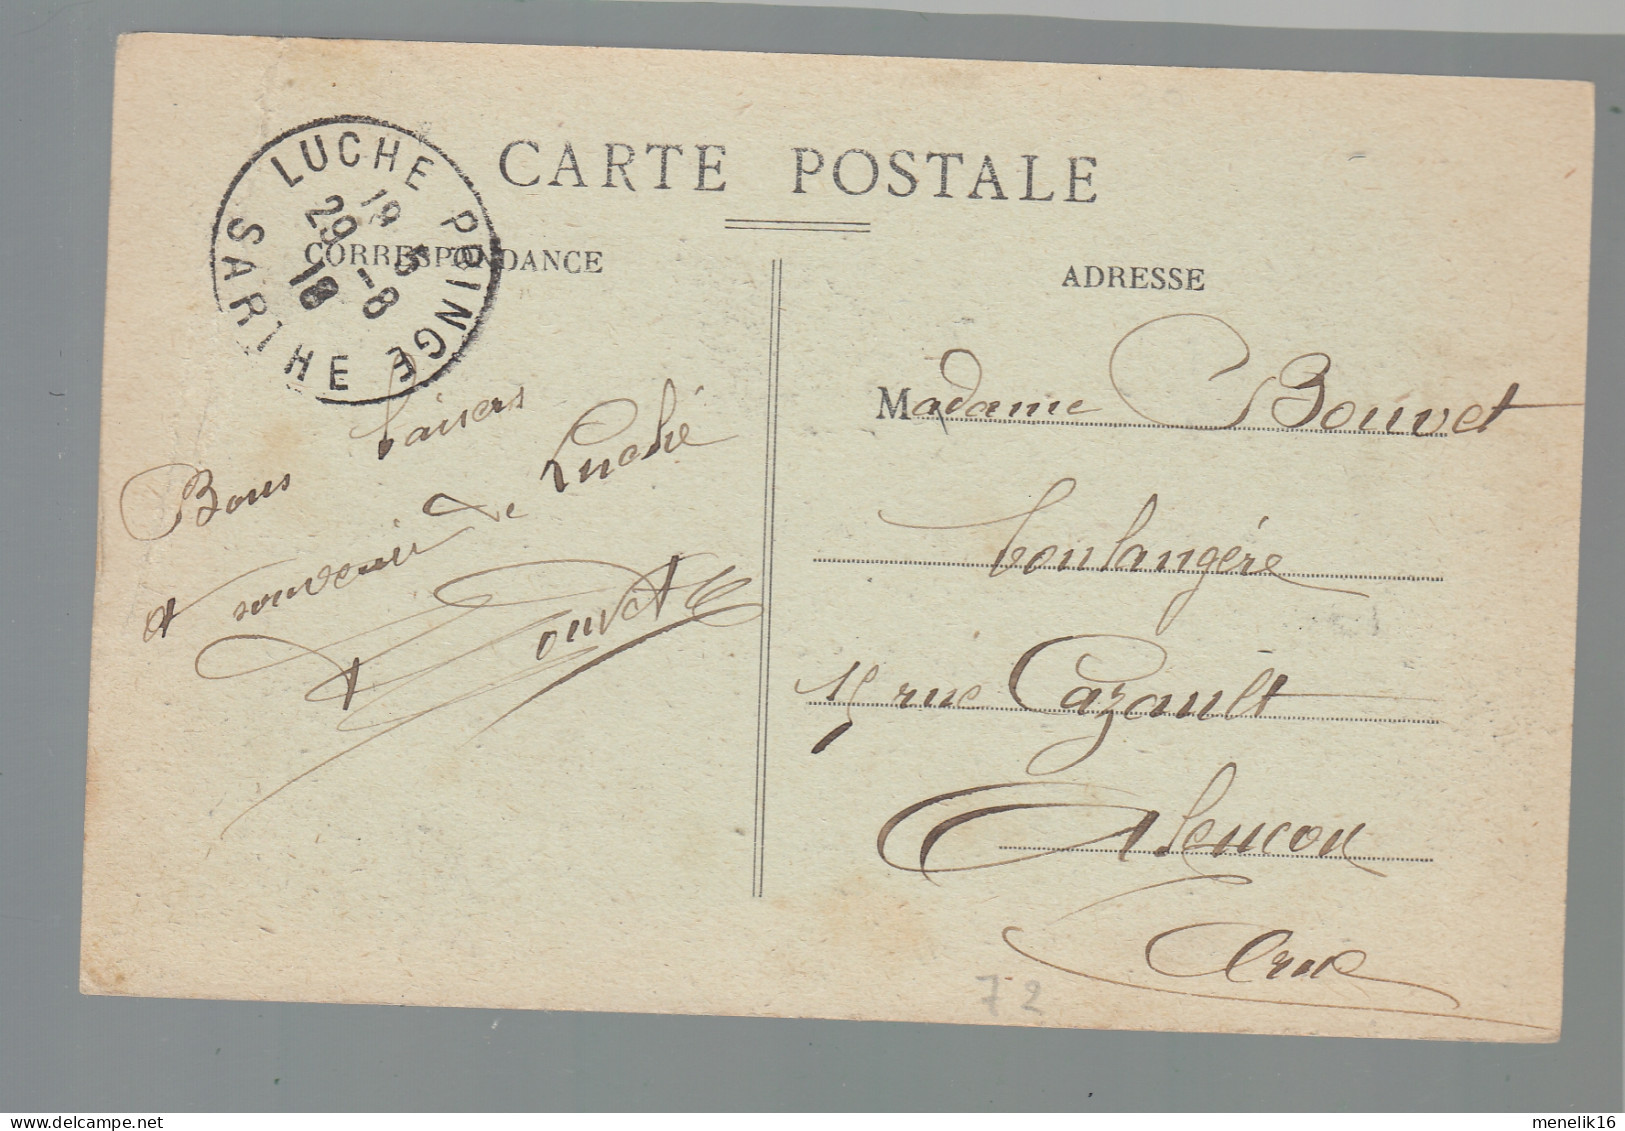 CARTE POSTALE
CORRESPONDANCE
ADRESSE
LUCHE PRINGE
19 5
29 -8
18
SARTHE
Bons baisers
et souvenir de Luché
Bouvet
Madame Bouvet
boulangère
15 rue Cazault
Alencon
Orne
72
menelik16